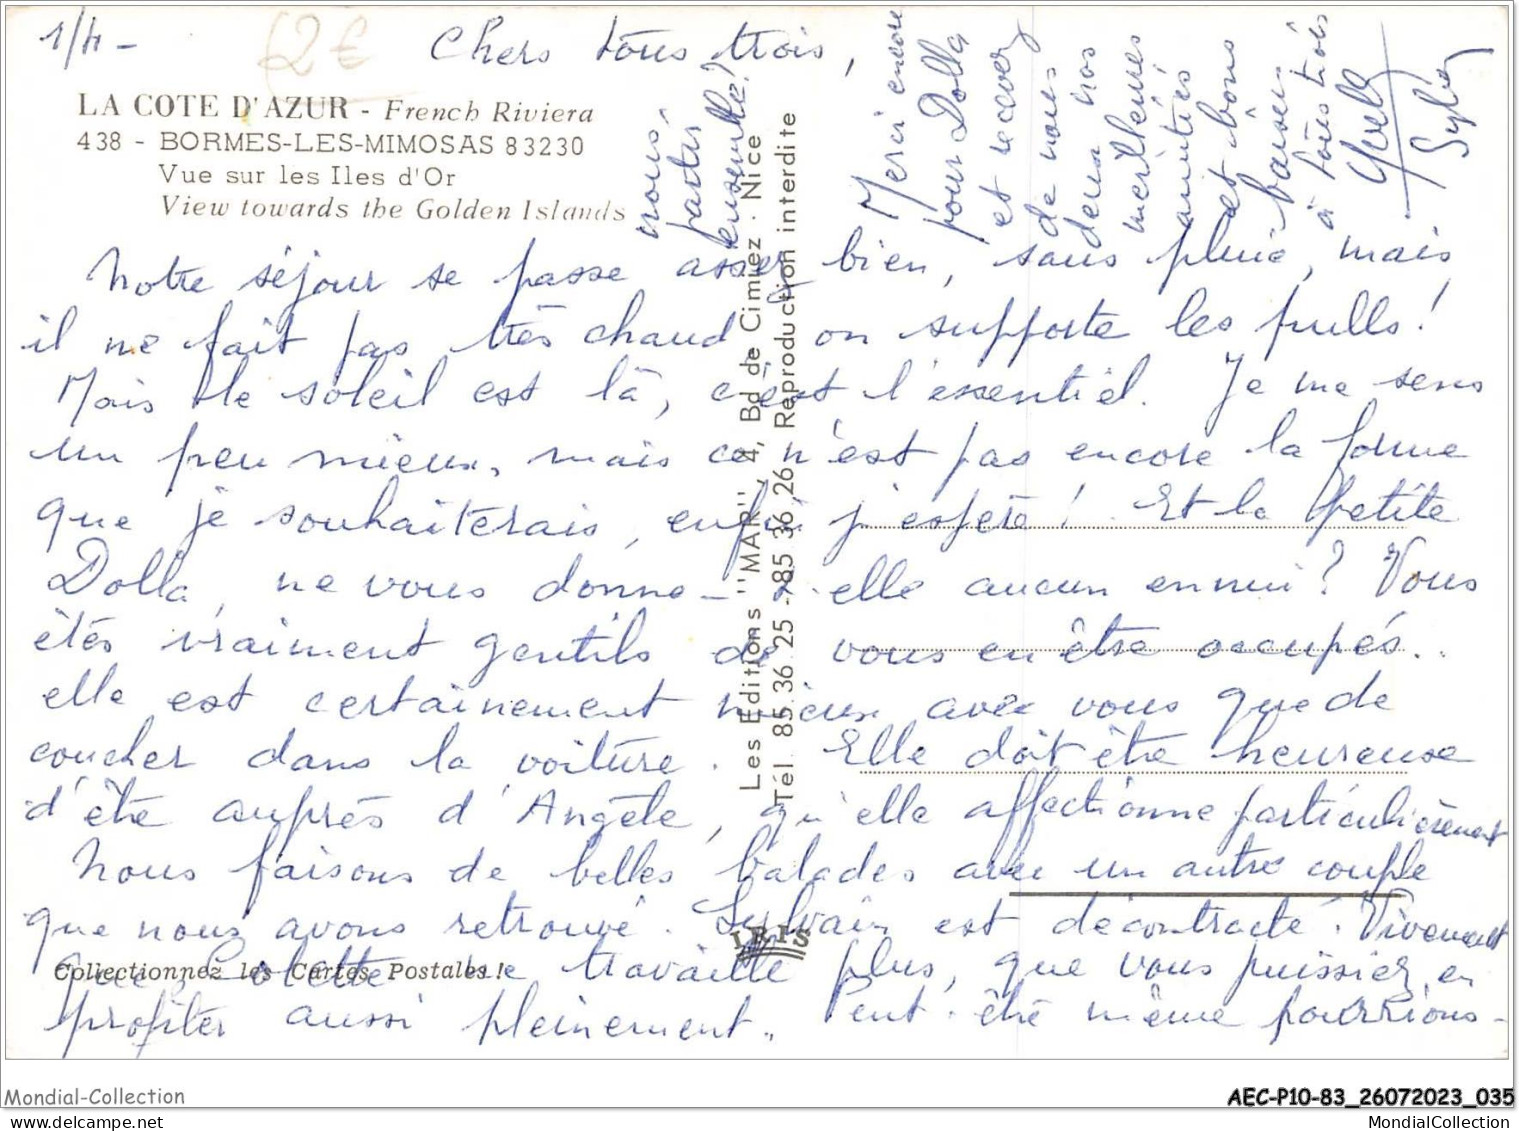 1/4 -
2€
Chers tous trois,
LA COTE D'AZUR - French Riviera
438 - BORMES-LES-MIMOSAS 83230
Vue sur les Iles d'Or
View towards the Golden Islands
Notre séjour se passe assez bien, sans pluie, mais
il ne fait pas très chaud, on supporte les pulls!
Mais le soleil est là, c'est l'essentiel. Je me sens
un peu mieux, mais ce n'est pas encore la forme
que je souhaiterais, enfin j'espère! Et la petite
Dolla, ne vous donne-t-elle aucun ennui? Vous
êtes vraiment gentils de vous en être occupés..
elle est certainement mieux avec vous que de
coucher dans la voiture. Elle doit être heureuse
d'être auprès d'Angèle, qu'elle affectionne particulièrement
Nous faisons de belles balades avec un autre couple
que nous avons retrouvé. Sylvain est décontracté. Vivement
que Colette ne travaille plus, que vous puissiez en
profiter aussi pleinement.. Peut-être même pourrions-
nous-
partir
ensemble?
Merci encore
pour Dolla
et recevez
de nous
deux nos
meilleures
amitiés
et bons
baisers
à tous trois
Les Editions "MAR", 4, Bd de Cimiez - Nice
Tél. 85.36.25 - 85.36.26 Reproduction interdite
IRIS
Collectionnez les Cartes Postales!
Mondial-Collection
AEC-P10-83_26072023_035
MondialCollection